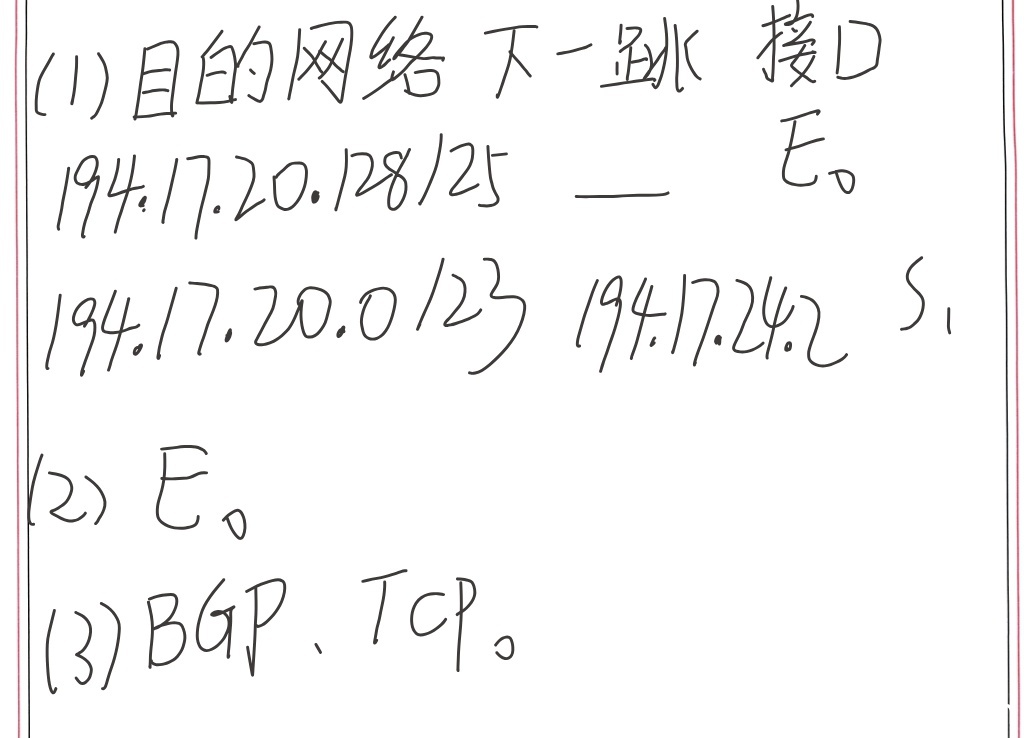 (1)目的网络 下一跳 接口
194.17.20.128/25 — E₀
194.17.20.0/23 194.17.24.2 S₁
(2) E₀
(3) BGP、TCP。